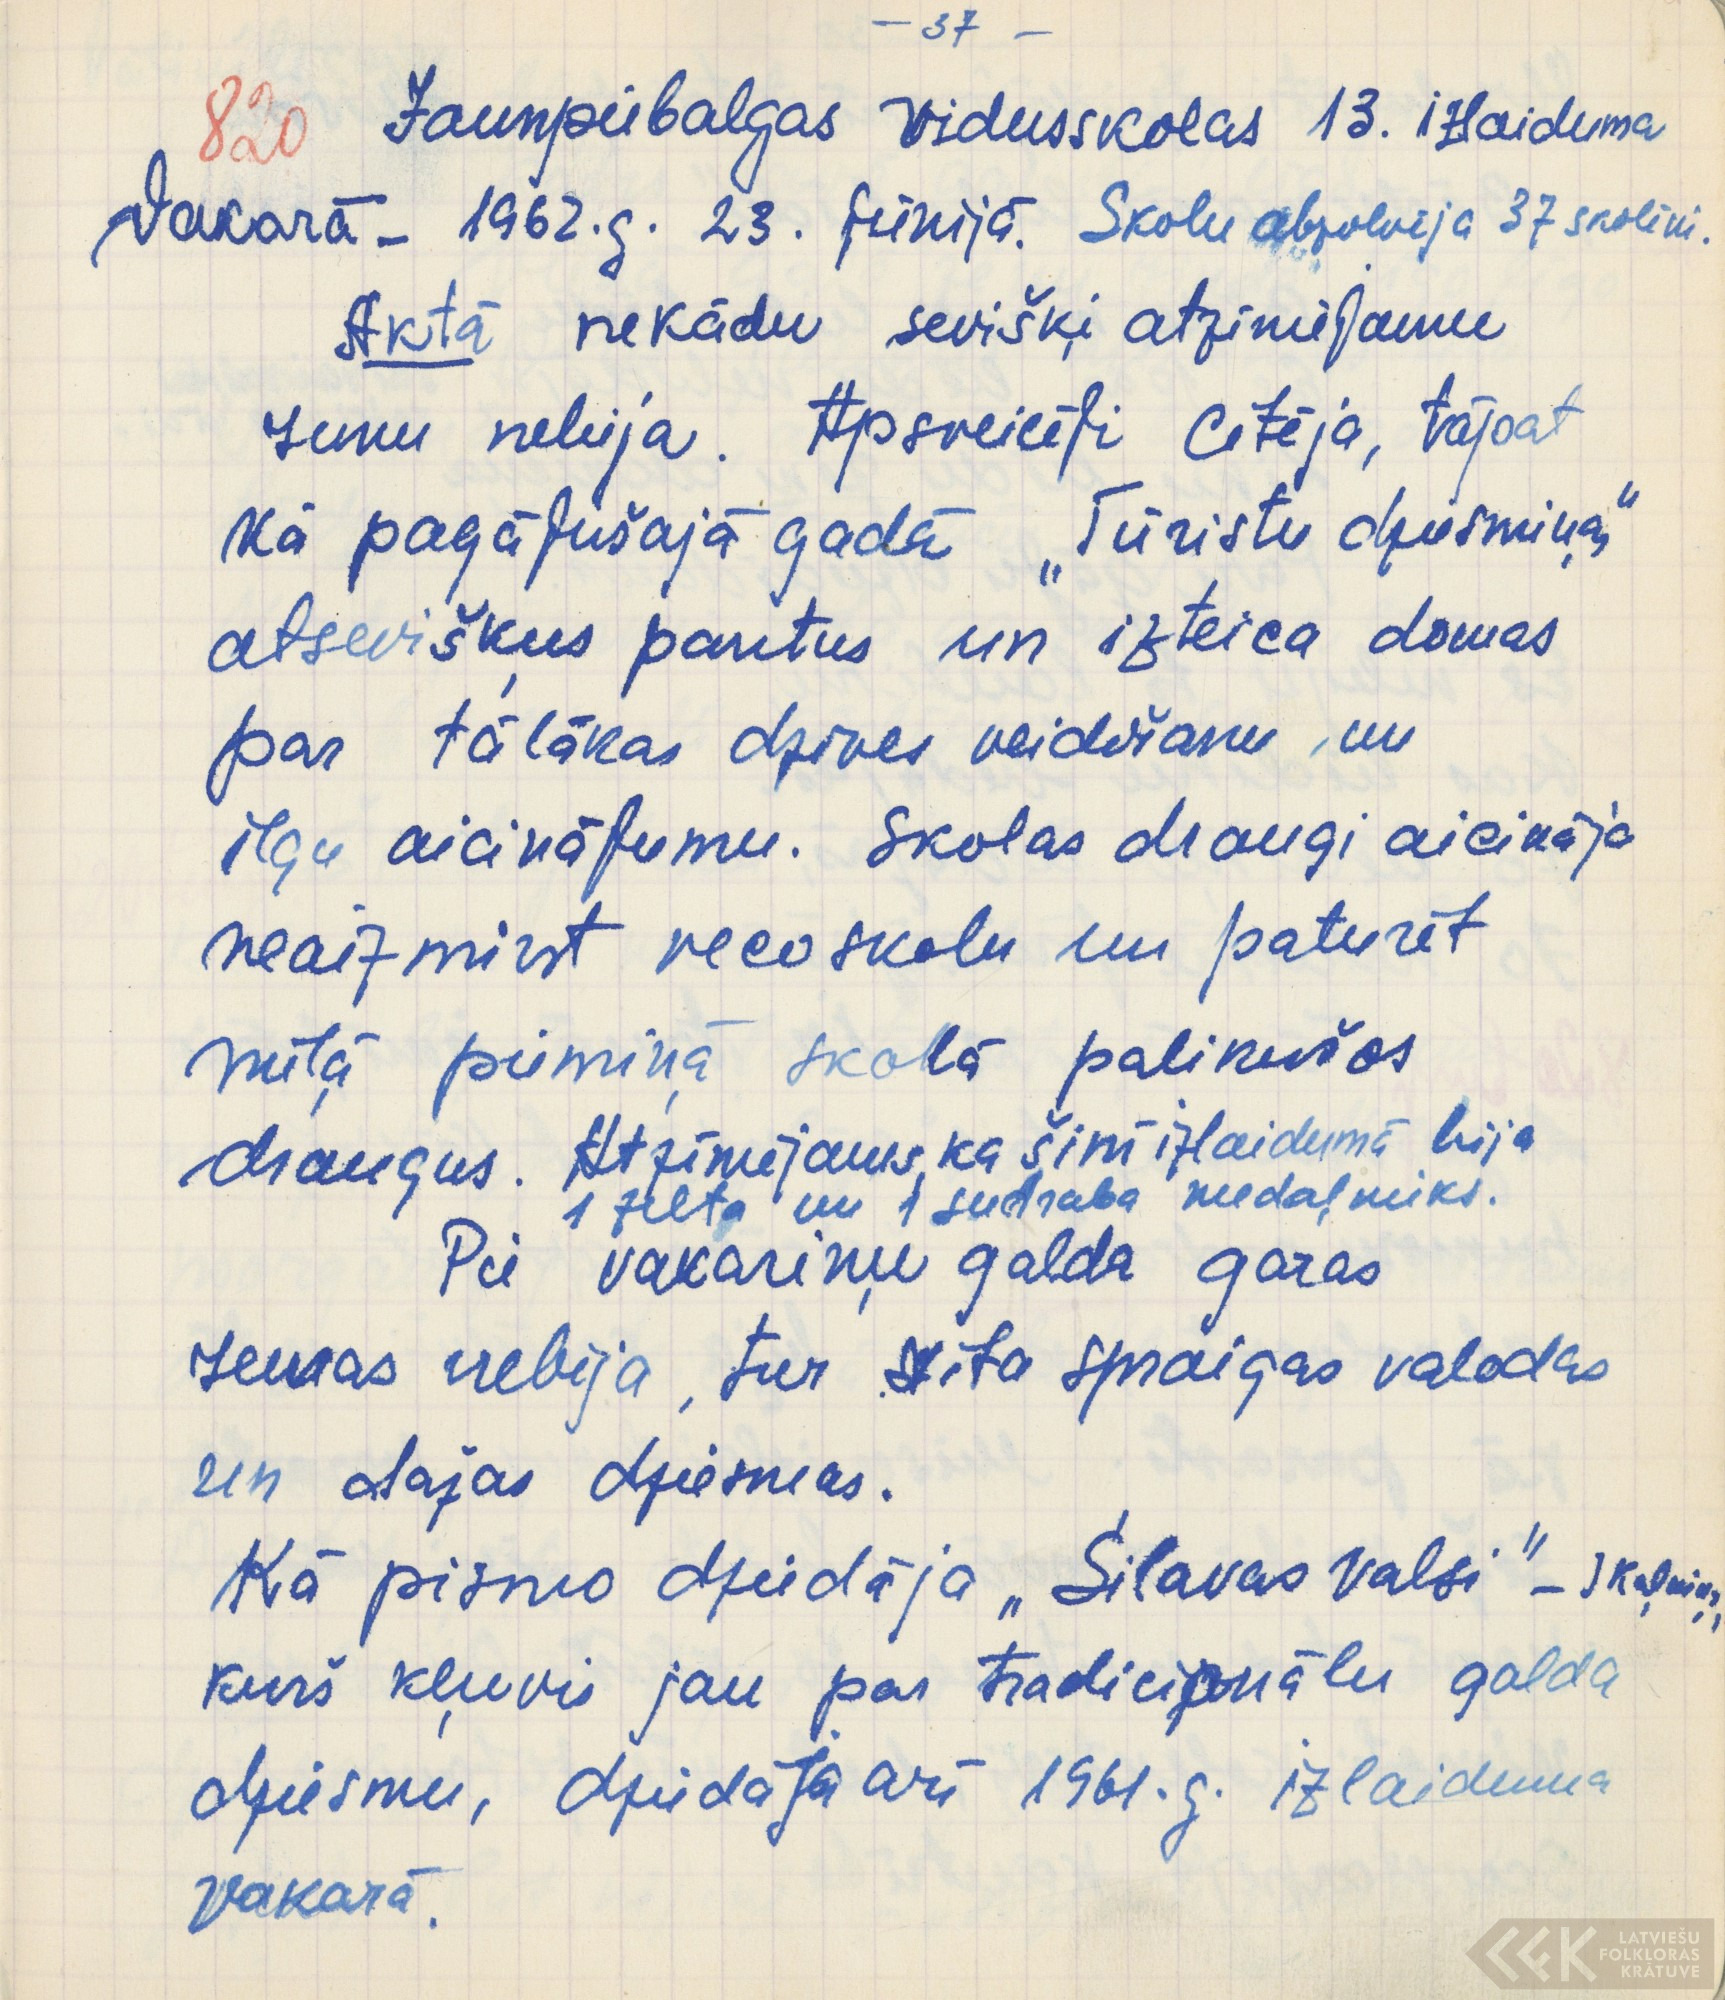 – 37 –
820 Jaunpiebalgas vidusskolas 13. izlaiduma
vakarā – 1962.g. 23. jūnijā. Skolu absolvēja 37 skolēni.
Aktā nekādu sevišķi atzīmējamu
runu nebija. Apsveicēji citēja, tāpat
kā pagājušajā gadā „Tūristu dziesmiņas"
atsevišķus pantus un izteica domas
par tālākas dzīves veidošanu un
ilgu aicinājumu. Skolas draugi aicināja
neaizmirst veco skolu un paturēt
mīļā piemiņā skolā palikušos
draugus. Atzīmējams, ka šinī izlaidumā bija
1 zelta un 1 sudraba medaļnieks.
Pie vakariņu galda garas
runas nebija, tur vija spraigas valodas
un dažas dziesmas.
Kā pirmo dziedāja „Silavas valsi" – I Kalniņš,
kurš kļuvis jau par tradicionālu galda
dziesmu, dziedāja arī 1961.g. izlaiduma
vakarā.
LATVIEŠU
FOLKLORAS
KRĀTUVE